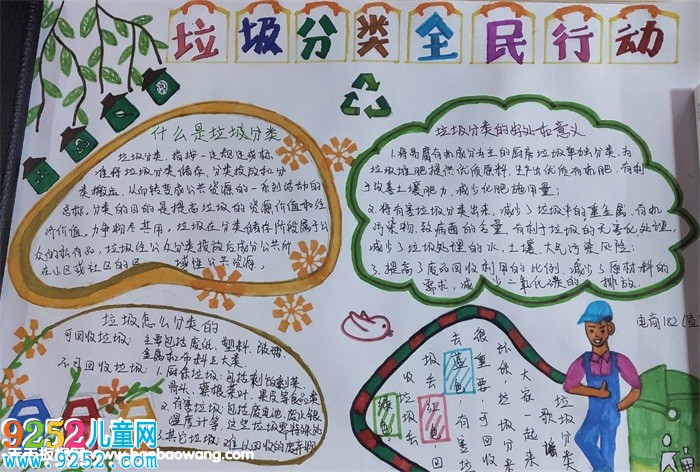 垃圾分类全民行动
什么是垃圾分类
垃圾分类,指按一定规定或标
准将垃圾分类储存、分类投放和分
类搬运,从而转变成公共资源的一系列活动的
总称,分类的目的是提高垃圾的资源价值和经
济价值,力争物尽其用,垃圾在分类储存阶段属于公
众的私有品,垃圾经公众分类投放后成为公共所
在小区或社区的区域性公共资源。
垃圾分类的好处和意义
1.将易腐有机成分为主的厨房垃圾单独分类,为
垃圾堆肥提供优质原料,生产出优质有机肥,有利
于改善土壤肥力,减少化肥施用量;
2.将有害垃圾分类出来,减少了垃圾中的重金属、有机
污染物、致病菌的含量,有利于垃圾的无害化处理,
减少了垃圾处理的水、土壤、大气污染风险;
3.提高了废品回收利用的比例,减少了原材料的
需求,减少二氧化碳的排放
垃圾怎么分类的
可回收垃圾:主要包括废纸、塑料、玻璃、
金属和布料五大类
不可回收垃圾:
1.厨余垃圾:包括剩饭剩菜、
骨头、菜根菜叶、果皮等食品类
2.有害垃圾:包括废电池、废水银
温度计等,这些垃圾需特殊处
3.其它垃圾:难以回收的废弃物
垃圾分类
歌一起来诵
环保,大家
很重要,可回
去蓝色
红色
绿色
电商182
9252儿童网
www.9252.com